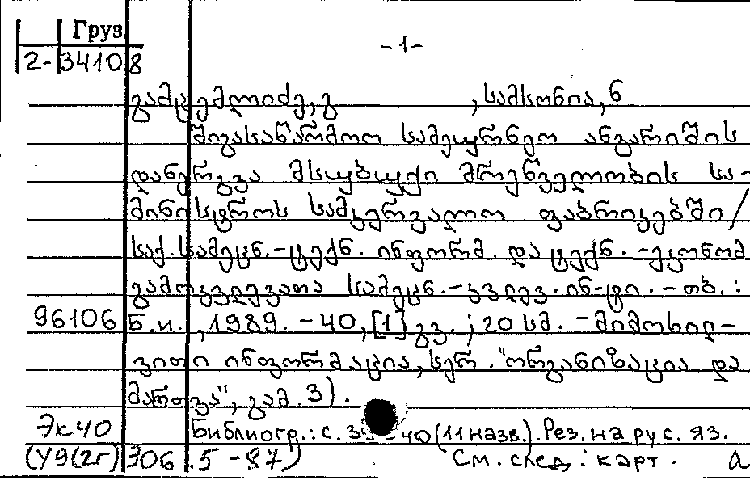 Груз
2-34108
-1-
გამყრელიძე, გ , სამსონია, ნ
შიგასაწარმოო სამეურნეო ანგარიშის
დანერგვა მსუბუქი მრეწველობის სა-
მინისტროს სამკერვალო ფაბრიკებში/
საქ. სამეცნ.-ტექნ. ინფორმ. და ტექნ.-ეკონომ
გამოკვლევათა სამეცნ.-კვლევ. ინ-ტი.-თბ.:
96106 Б.и., 1989.-40,[1]გვ.; 20 სმ.-(მიმოხილ-
ვითი ინფორმაცია, სერ. "ორგანიზაცია და
მართვა", გამ. 3).
Эк40 Библиогр.: с. 40 (11 назв.). Рез. на рус. яз.
(У9(2г)306.5-87) См. след. карт. а